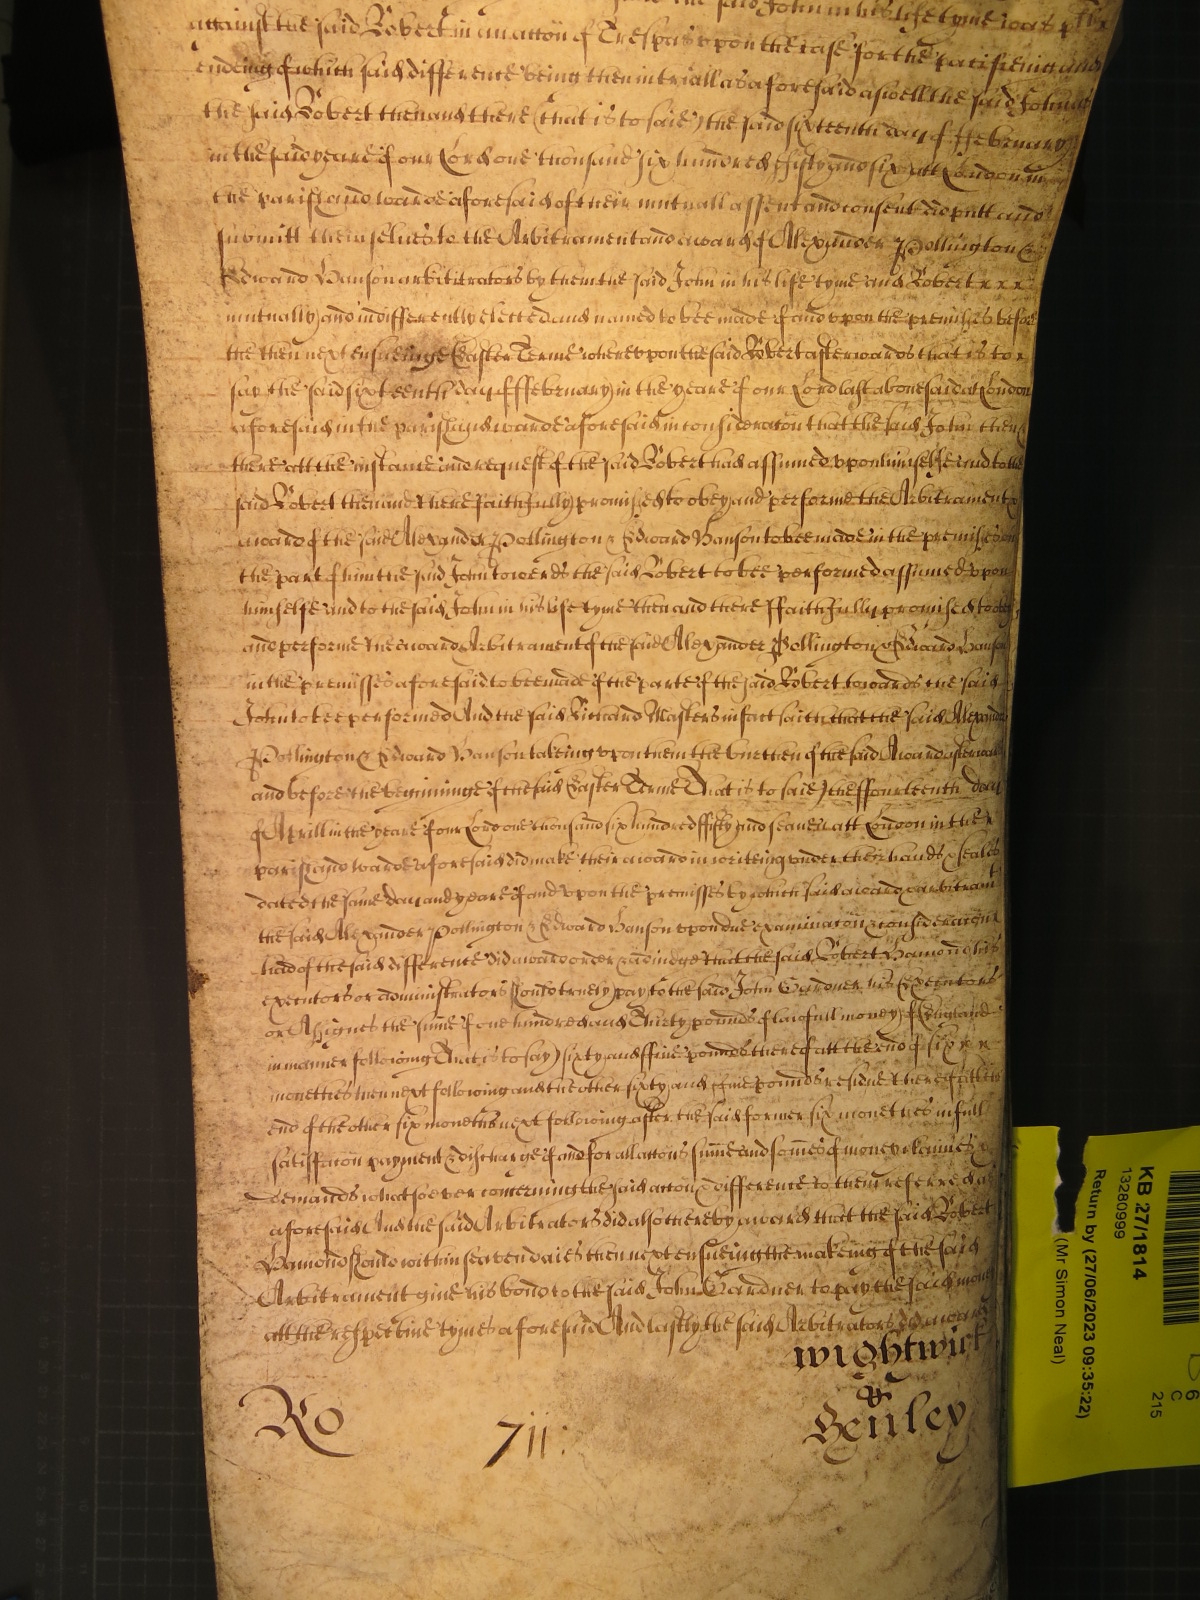 the said John in his life tyme was
against the said Robert in an accon of Trespas vpon the case for the pacifieing and
endeing of which said difference being then in triall as aforesaid aswell the said John as
the said Robert then and there (that is to saie) the said sixteenth day of ffebruary
in the said yeare of our Lord one thousand six hundred fifty and six att London in
the parish and warde aforesaid of their mutuall assent and consent did putt and
submitt themselues to the Arbitrament and award of Alexander Pollington &
Edward Hanson arbititrators by them the said John in his life tyme and Robert
mutually and indifferently elected and named to bee made of and vpon the premisses before
the then next ensueinge Easter Terme wherevpon the said Robert afterwards that is to
say the said sixteenth day of ffebruary in the yeare of our Lord last abouesaid at London
aforesaid in the parish and warde aforesaid in consideracon that the said John then &
there att the instance and request of the said Robert had assumed vpon himselfe and to the
said Robert then and there faithfully promised to obey and performe the Arbitrament &
award of the said Alexander Pollington & Edward Hanson to bee made in the premisses on
the part of him the said John towerds the said Robert to bee performed assumed vpon
himselfe and to the said John in his life tyme then and there ffaithfully promised to obey
and performe the award Arbitrament of the said Alexander Pollington & Edward Hanson
in the premisses aforesaid to bee made of the parte of the said Robert towards the said
John to bee performed And the said Richard Masters in fact saith that the said Alexander
Pollington & Edward Hanson takeing vpon them the burthen of the said Award afterwards
and before the beginninge of the said Easter Terme That is to saie the ffourteenth day
of Aprill in the yeare of our Lord one thousand six hundred fifty and seauen att London in the
parish and warde aforesaid did make their award in writeing vnder their hands & seales
dated the same day and yeare of and vpon the premisses by which said award & arbitramt
the said Alexander Pollington & Edward Hanson vpon due examinacon & consideracon
had of the said difference did award order and iudge that the said Robert Hamond his
executors or administrators should truely pay to the said John Gardner his Executors
or Assignes the summe of one hundred and Thirty pounds of lawfull money of England
in manner following That is to say) sixty and ffiue pounds thereof att the end of six
monethes then next following and the other sixty and ffiue pounds residue thereof att the
end of the other six moneths next following after the said former six monethes in full
satisfaccon payment & discharge of and for all accons summe and somes of money claimes &
demands whatsoever concerning the said accon & difference to them referred as
aforesaid And the said Arbitrators did also thereby award that the said Robert
Hamond should within seaven daies then next ensueing the makeing of the said
Arbitrament giue his bond to the said John Gardner to pay the said money
att the respectiue tymes aforesaid And lastly the said Arbitrators did award
Wightwick
&
Ro 711:
KB 27/1814
13280999
Return by (27/06/2023 09:35:22)
(Mr Simon Neal)
6
C
215